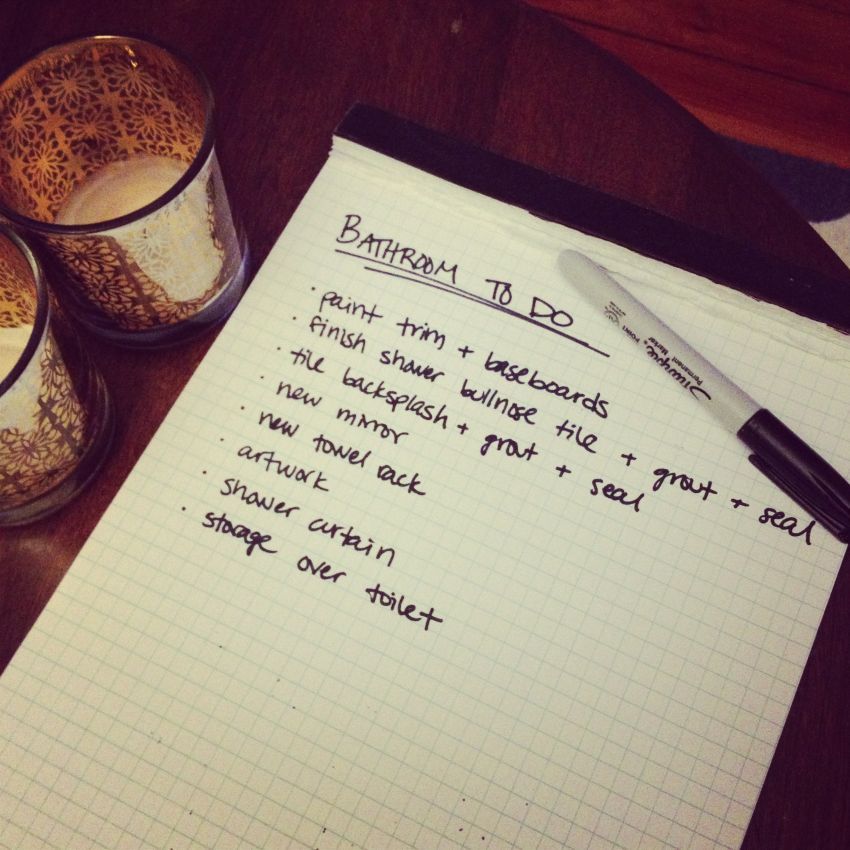 BATHROOM TO DO
· paint trim + baseboards
· finish shower bullnose tile + grout + seal
· tile backsplash + grout + seal
· new mirror
· new towel rack
· artwork
· shower curtain
· storage over toilet
Sharpie.
Permanent Marker